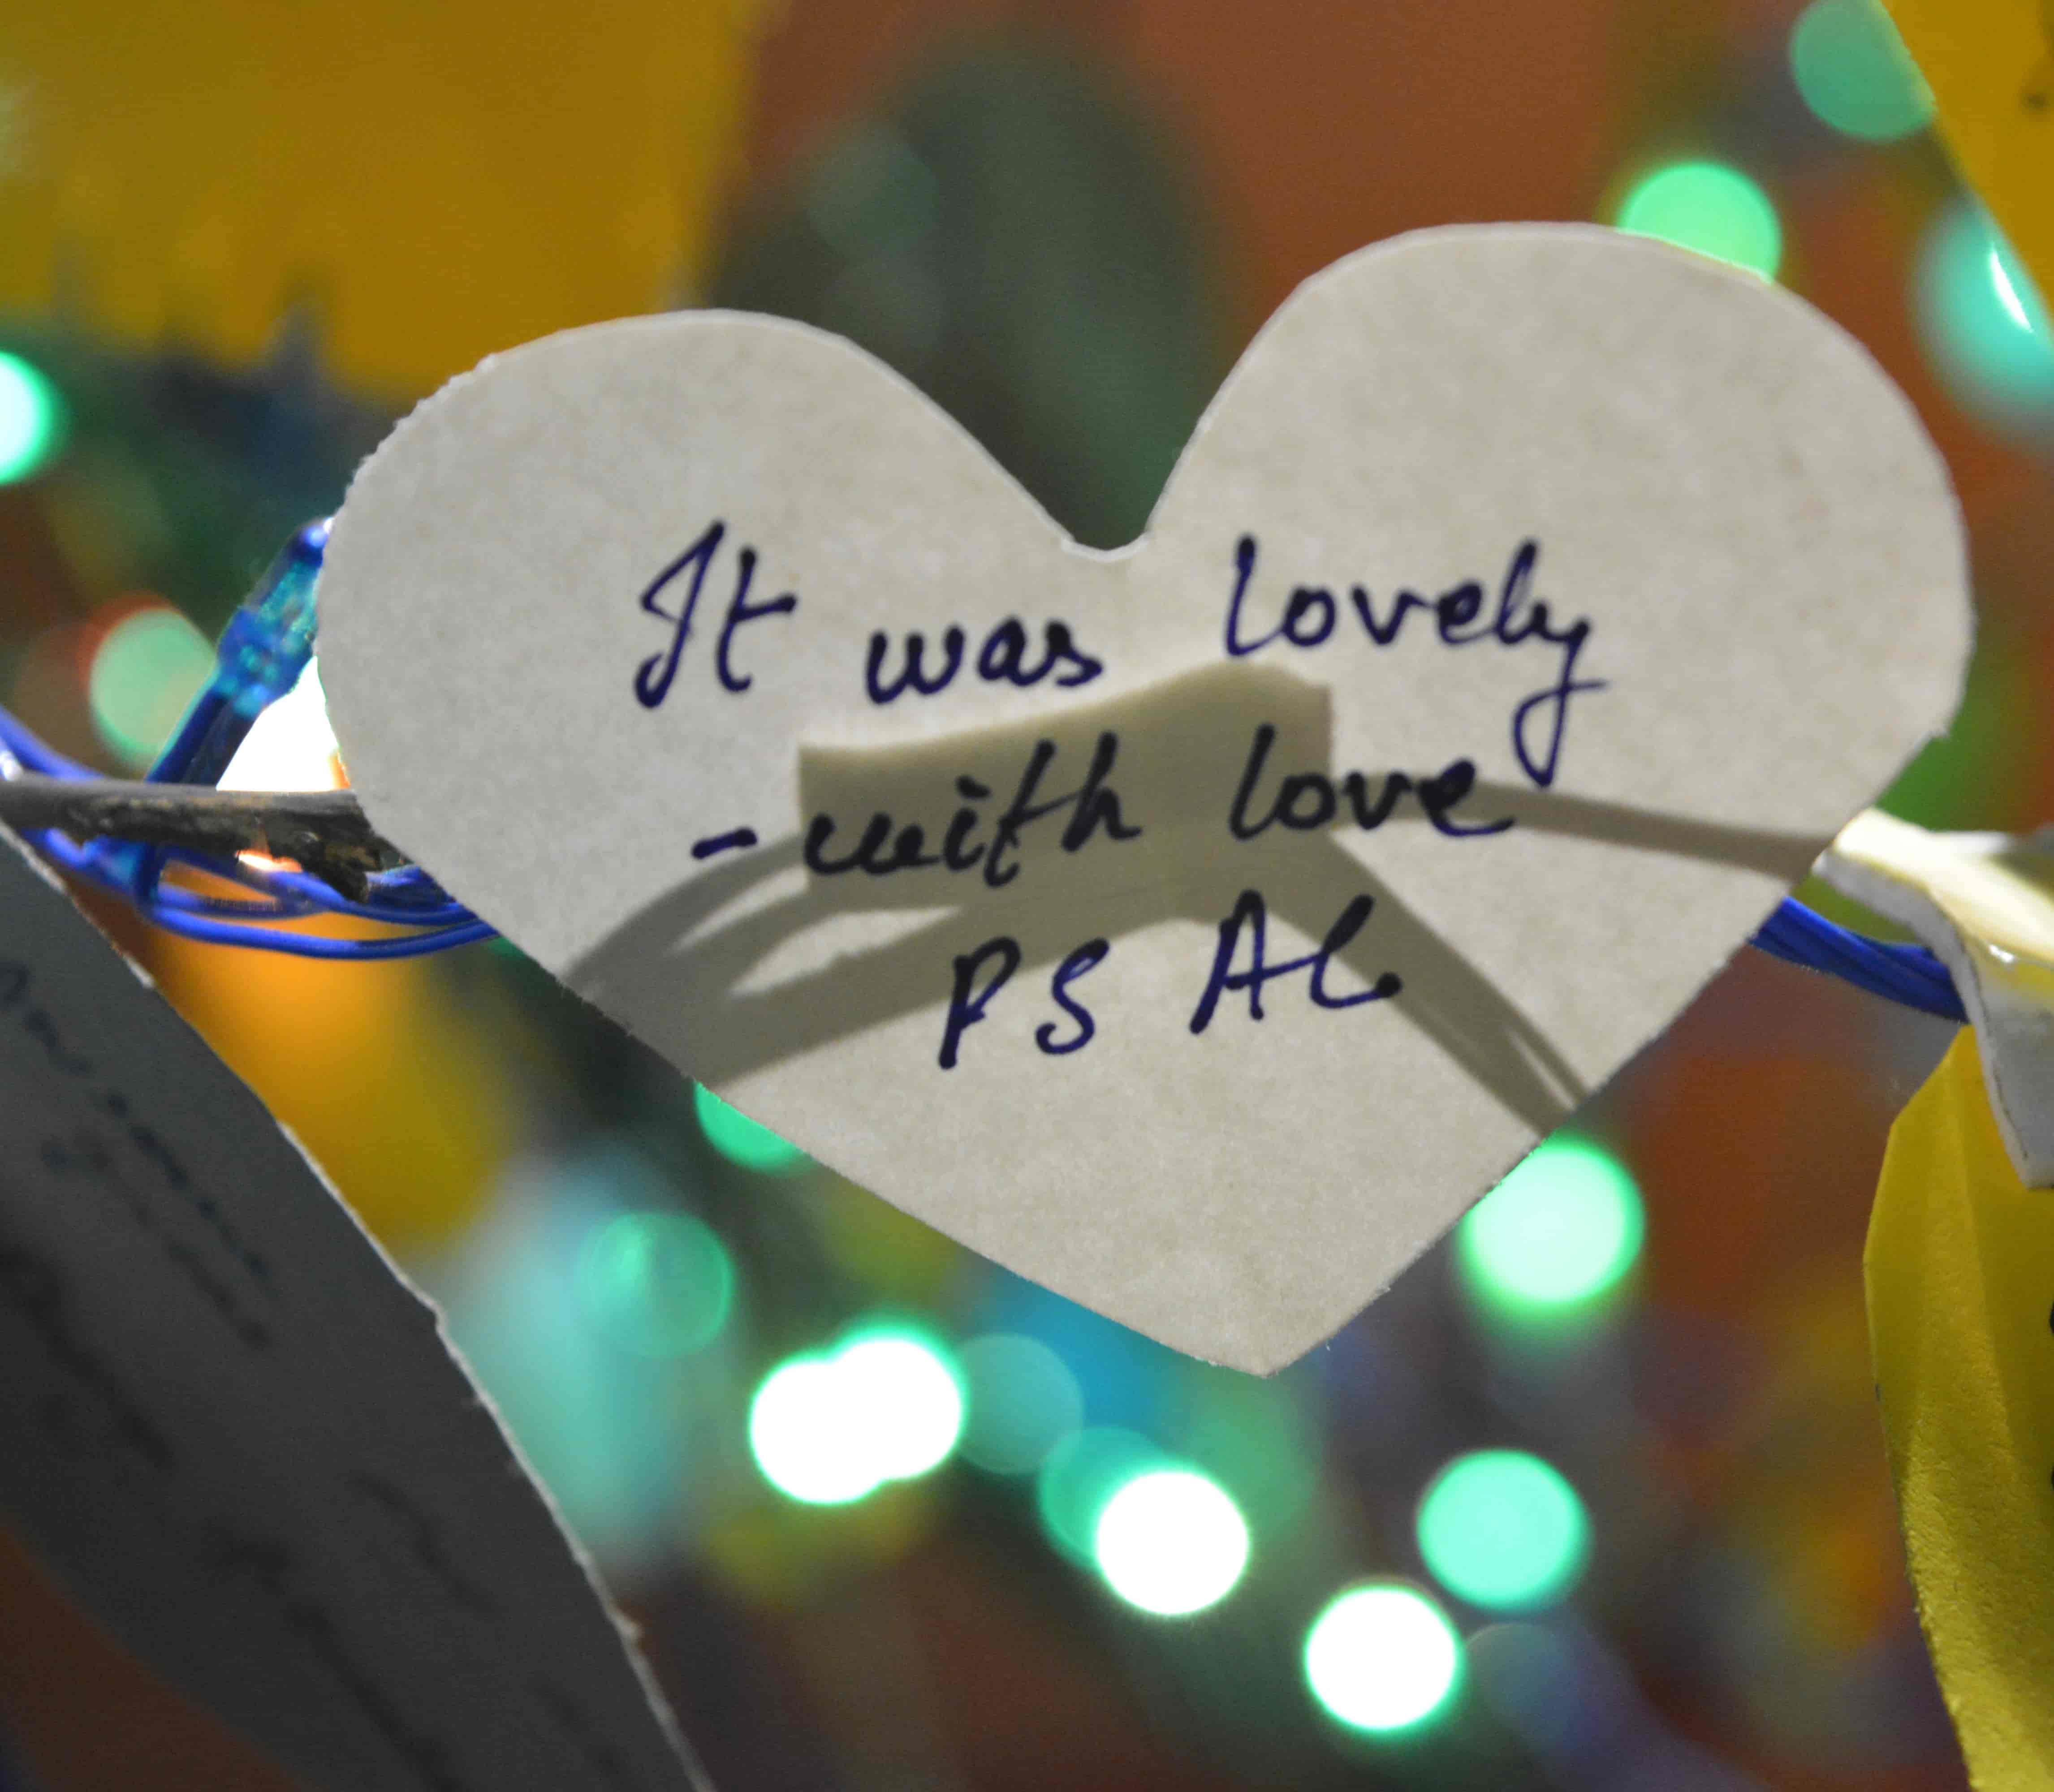 It was lovely
-with love
PS AC